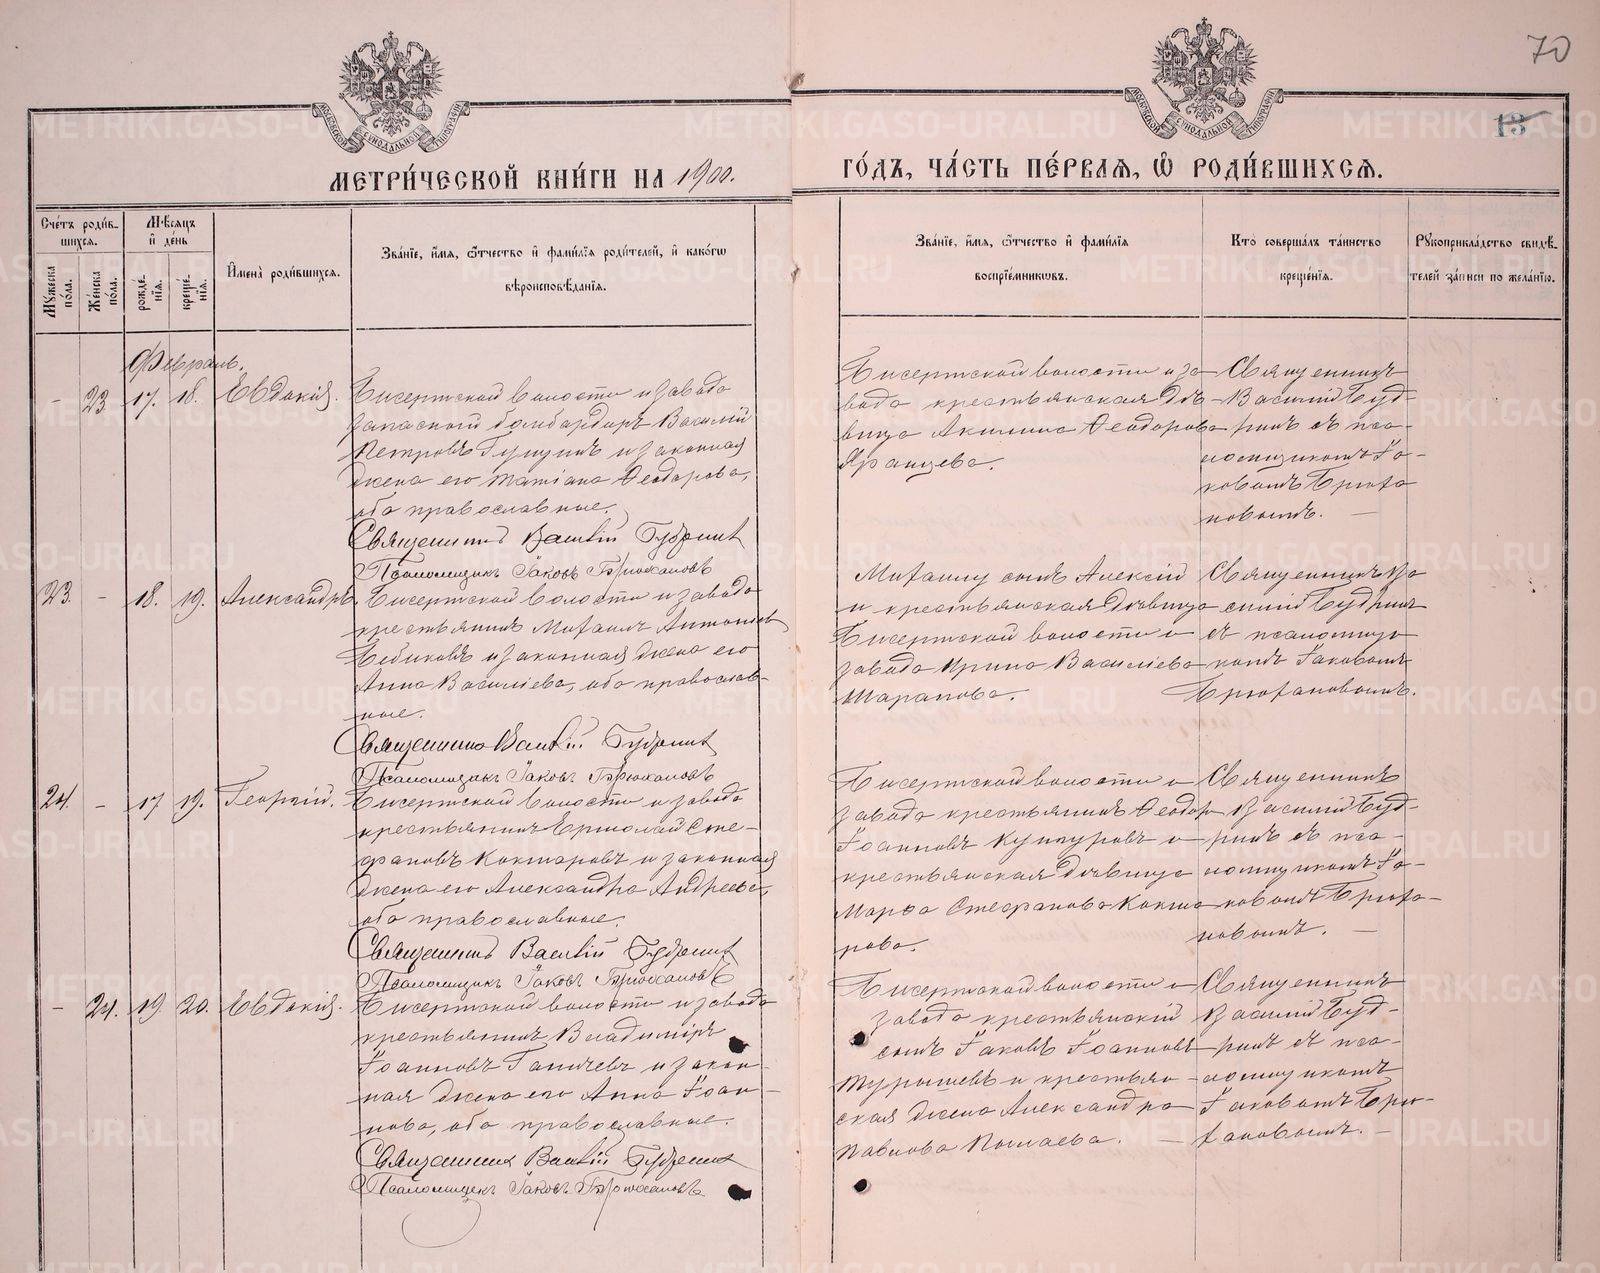 70
13
МЕТРИ́ЧЕСКОЙ КНИ́ГИ НА 1900.
ГО́ДЪ, ЧА́СТЬ ПЕ́РВАѦ, Ѽ РОДИ́ВШИХСѦ.
Сче́тъ роди́вшихсѧ.
Му́жеска по́ла.
Же́нска по́ла.
Мѣ́сѧцъ и҆ де́нь
рожде́нїѧ.
креще́нїѧ.
И҆мена̀ роди́вшихсѧ.
Зва́нїе, и҆́мѧ, ѻ҆́тчество и҆ фами́лїѧ роди́телей, и҆ како́гѡ
вѣроисповѣ́данїѧ.
Зва́нїе, и҆́мѧ, ѻ҆́тчество и҆ фами́лїѧ
воспрїе́мникѡвъ.
Кто̀ соверша́лъ та́инство
креще́нїѧ.
Рꙋкоприкла́дство свидѣ́
телей за́писи по жела́нїю.
Февраль.
- 23 17. 18. Евдокія.
Бисертской волости и завода
запасный бомбардиръ Василій
Петровъ и законная
жена его Татіана Феодорова,
оба православные.
Священникъ Василій Будринъ
Псаломщикъ Іаковъ Брюхановъ
Бисертской волости и за
вода крестьянская дѣ-
вица Акилина Феодорова
Яранцева.
Священникъ
Василій Буд-
ринъ съ пса-
ломщикомъ Іа-
ковомъ Брюха
новымъ. —
23. - 18. 19. Александръ.
Бисертской волости и завода
крестьянинъ Михаилъ Антоніев
Бебиковъ и законная жена его
Анна Василіева, оба православ-
ные.
Священникъ Василій Будринъ
Псаломщикъ Іаковъ Брюхановъ
сынъ Алексій
и крестьянская дѣвица
Бисертской волости и
завода Ирина Василіева
Шарапова.
Священникъ Ва
силій Будринъ
съ псаломщи
комъ Іаковомъ
Брюхановымъ.
24. - 17 19. Георгій.
Бисертской волости и завода
крестьянинъ Ермолай Сте-
фановъ Кокшаровъ и законная
жена его Александра Андреева,
оба православные.
Священникъ Василій Будринъ
Псаломщикъ Іаковъ Брюхановъ
Бисертской волости и
завода крестьянинъ Феодор
Іоанновъ и
крестьянская дѣвица
Марфа Стефанова Кокша
рова.
Священникъ
Василій Буд-
ринъ съ пса-
ломщикомъ Іа-
ковомъ Брюха-
новымъ. —
- 24. 19 20. Евдокія.
Бисертской волости и завода
крестьянинъ Владиміръ
Іоанновъ и закон-
ная жена его Анна Іоан-
нова, оба православные.
Священникъ Василій Будринъ
Псаломщикъ Іаковъ Брюхановъ
Бисертской волости и
завода крестьянскій
сынъ Іаковъ Іоанновъ
Турышевъ и крестьян
ская жена Александра
Павлова
Священникъ
Василій Буд-
ринъ съ пса-
ломщикомъ
Іаковомъ Брю-
хановымъ. —